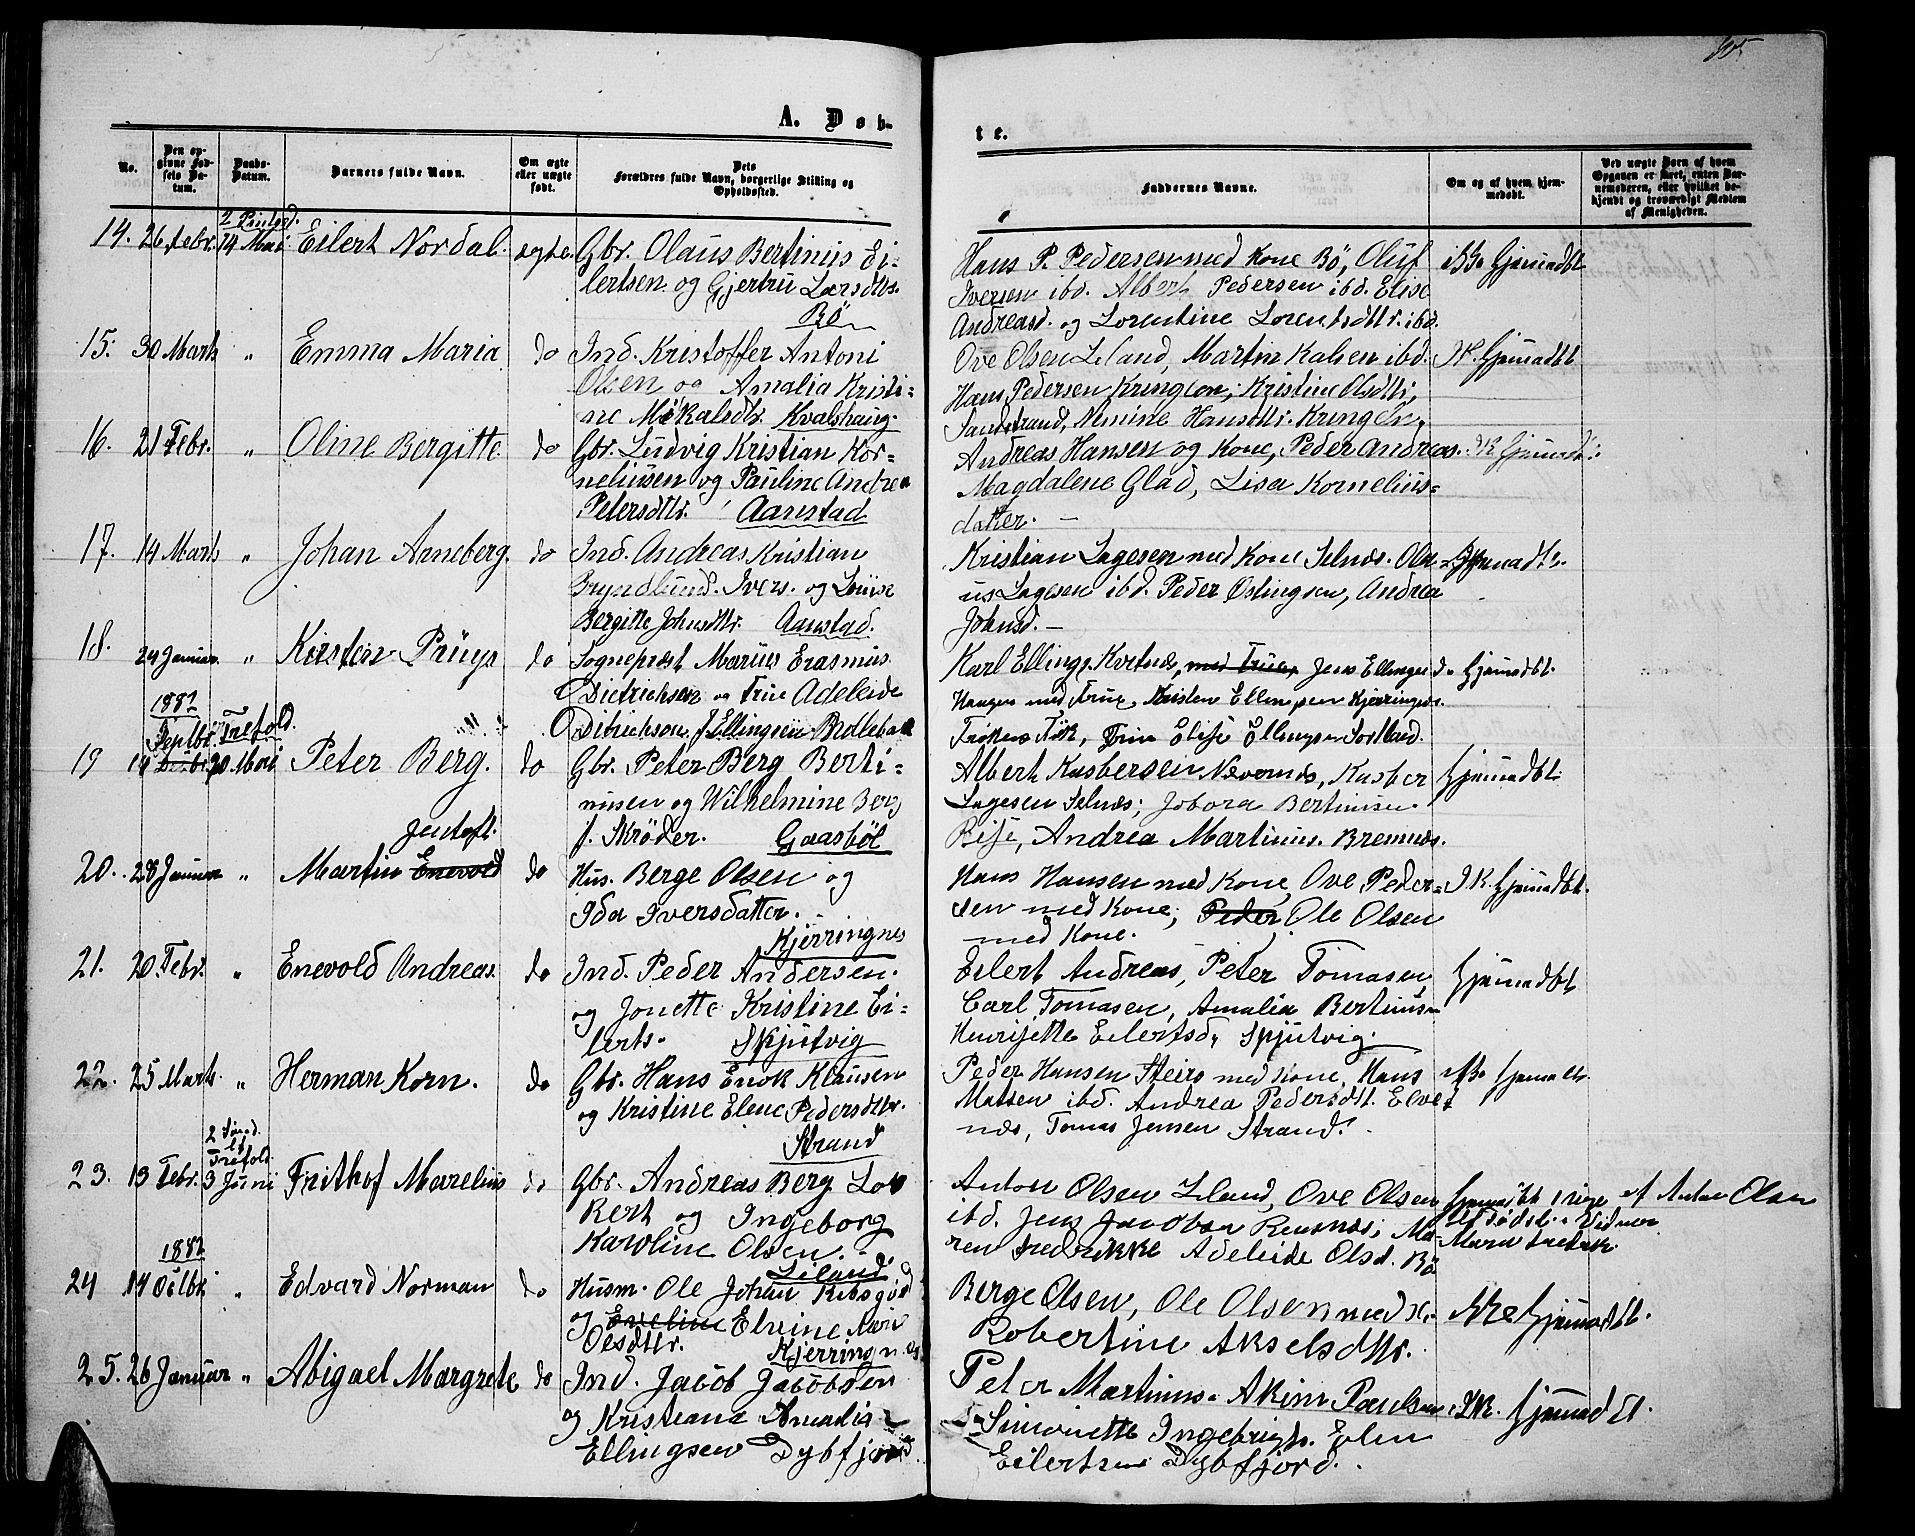 85.
A. Døb-
te.
No.
Den op-
givne Fød-
sels Da-
tum.
Daabs-
Datum.
Barnets fulde Navn.
Om ægte
eller uægte
født.
Dets
Forældres fulde Navn, borgerlige Stilling og
Opholdsted.
Faddernes Navne.
Om og af hvem hjem-
medøbt.
Ved uægte Børn af hvem
Opgaven er skeet, enten Bar-
nemoderen, eller hvilket be-
kjendt og troværdigt Medlem
af Menigheden.
2 Pintsed.
14. 26 Febr. 14 Mai. Eilert Nordal. ægte.
Gbr. Olaus Bertinus Ei-
lertsen og Gjertru Larsdtr.
Bö
Hans P. Pedersen med Kone Bö, Oluf
Iversen ibd. Albert Pedersen ibd. Elise
Andreasd. og Lorentine Lorentsdtr. ibd.
Hjemmdbt
15. 30 Marts " Emma Maria do
Ind. Kristoffer Antoni
Olsen og Amalia Kristi-
ne Mikalsdtr. Kvalshaug
Ove Olsen Leland, Martin Kalsen ibd.
Hans Pedersen Kringlen, Kristine Olsdtr,
Sandstrand, Nimine Hansdtr. Kringlen.
Hjemmdbt
16. 21 Febr. " Oline Bergitte do
Gbr. Ludvig Kristian Kor-
neliusen og Pauline Andrea
Petersdtr. Aanstad
Andreas Hansen og Kone, Peder Andreas.
Magdalene Glad, Lisa Kornelius-
datter. —
Hjemmdt.
17. 14 Marts " Johan Arneberg. do
Ind. Andreas Kristian
Gryndlund. Ivers. og Louise
Bergitte Johnsdtr. Aanstad.
Kristian Lagesen med Kone Selnæs. Ola-
us Lagesen ibd. Peder Ostingsen, Andrea
Johnsd. —
Hjemmdt.
18. 24 Januar. " Kirsten Prüys do
Sogneprest Marius Erasmus
Dietrichsen og Frue Adeleide
Ditrichsen, f. Ellingsen
Karl Ellings. Kvitnæs, med Frue, Jens Ellingsen
Haugen med Frue, Kristen Ellingsen Kjerringnæs.
Frøken Fick, Frue Elise Ellingsen Sortland.
Hjemmdbt.
1882
Septbr. Trefold.
19 14 20 Mai Peter Berg. do
Gbr. Peter Berg Berti-
nusen og Wilhelmine Berg
f. Skrøder. Gaasböl
Albert Kasbersen Nævernes, Kasber
Lagesen Selnæs; Jobora Bertinusen
Reise, Andrea Martinius. Bremnæs.
Hjemmdbt
Jentoft.
20. 28 Januar " Martin Enevold do
Hus. Berge Olsen og
Ida Iversdatter.
Kjerringnes
Hans Hansen med Kone, Ove Peder-
sen med Kone, Peder, Ole Olsen
med Kone.
J. K. Hjemmdbt.
21. 20 Febr. " Enevold Andreas. do
Ind. Peder Andersen.
og Jonette Kristine Ei-
lerts. Skjutvig
Eilert Andreas, Peter Tomasen,
Carl Tomasen, Amalia Bertinus-
Henriette Eilertsd, Skjutvig.
Hjemmdbt
22. 25 Marts. " Herman Korn. do
Gbr. Hans Enok Klausen
og Kristine Elene Pedersdtr.
Strand
Peder Hansen Steirs med Kone, Hans
Matsen ibd. Andrea Pedersdt. Elvet
næs, Tomas Jensen Strand.
Hjemmdbt.
2 Sönd.
ef
Trefold.
23. 13 Febr. 3 Juni Frithof Marelius do
Gbr. Andreas Berg Lov
Kert og Ingeborg
Karoline Olsen.
Leland
Anton Olsen Leland, Ove Olsen
ibd. Jens Jacobsen Rensnæs; Ma-
ren Fredrikke Adeleide Olsd. Bö
Hjemmdbt af Anton Olsen
1882
24 14 Oktbr " Edvard Norman do
Husm. Ole Johan Ribsgjord
og Eveline Elvine Mari
Olsdtr. Kjerringnes
Berge Olsen, Ole Olsen med K.
Robertine Akselsdtr.
Ikke Hjemmdbt.
25. 26 Januar " Abigael Margrete do
Ind. Jacob Jacobsen
og Kristiana Amadis
Ellingsen Dybfjord
Peter Martinus. Akim Paulsen
Simonette Ingebrigts. Elen
Eilertsen Dybfjord.
I.K. Hjemmdbt.